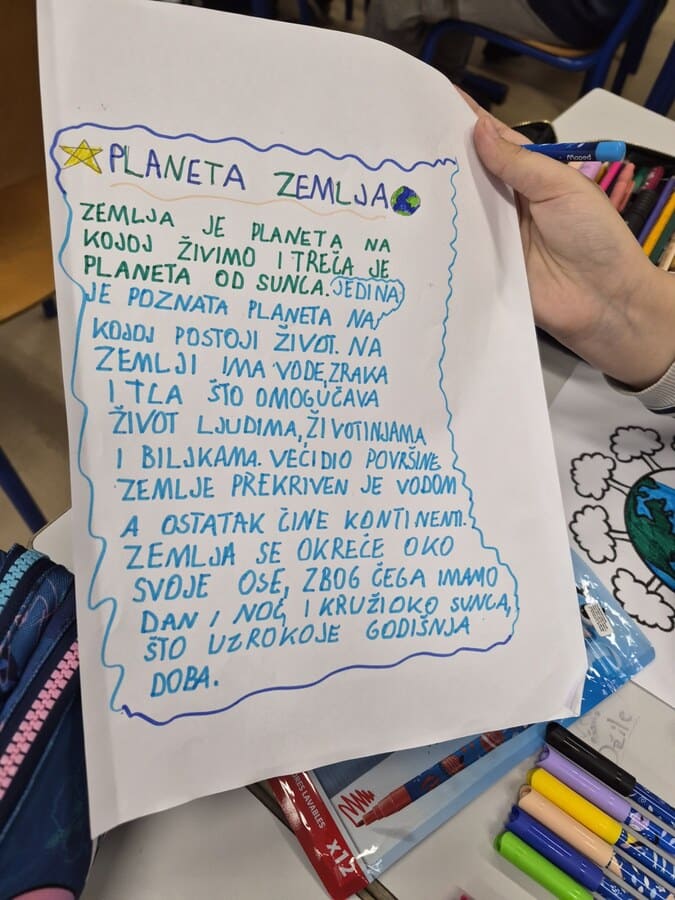 PLANETA ZEMLJA
ZEMLJA JE PLANETA NA
KOJOJ ŽIVIMO I TREĆA JE
PLANETA OD SUNCA. JEDINA
JE POZNATA PLANETA NA
KOJOJ POSTOJI ŽIVOT. NA
ZEMLJI IMA VODE, ZRAKA
I TLA ŠTO OMOGUČAVA
ŽIVOT LJUDIMA, ŽIVOTINJAMA
I BILJKAMA. VEĆI DIO POVRŠINE
ZEMLJE PREKRIVEN JE VODOM
A OSTATAK ČINE KONTINENTI.
ZEMLJA SE OKREĆE OKO
SVOJE OSE, ZBOG ČEGA IMAMO
DAN I NOĆ I KRUŽI OKO SUNCA,
ŠTO UZROKOJE GODIŠNJA
DOBA.
Maped
RES LAVABLES
x12